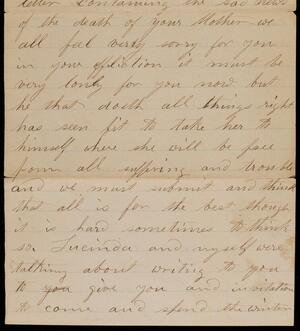 letter Containing the sad news
of the death of your Mother we
all feel verry sorry for you
in your afliction it must be
very lonly for you now but
he that doeth all things right
has seen fit to take her to
himself where she will be free
from all suffring and trouble
and we must submit and think
that all is for the best though
it is hard sometimes to think
so Lucinda and myself were
talking about writing to you
to give you and invitation
to come and spend the winter